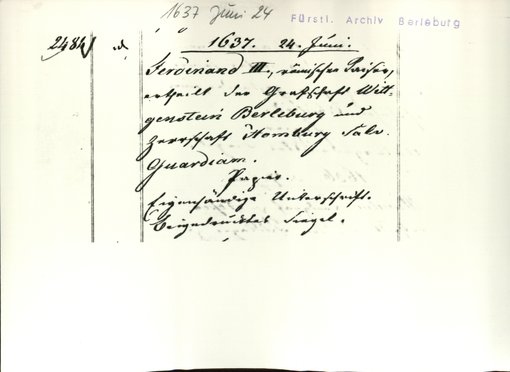 1637 Juni 24
Fürstl. Archiv Berleburg
2484
1637. 24. Juni.
Ferdinand III., römischer Kaiser,
ertheilt der Grafschaft Witt-
genstein Berleburg und
Herrschaft Homburg Salv.
Guardiam.
Papier.
Eigenhändige Unterschrift.
Beigedrucktes Siegel.